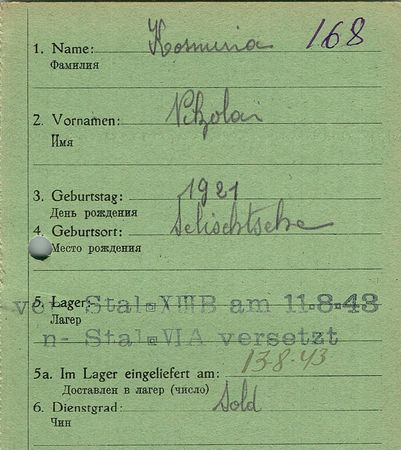 1. Name: Kosmina 168
Фамилия
2. Vornamen: Nikolai
Имя
3. Geburtstag: 1921
День рождения
4. Geburtsort: Selischtsche
Место рождения
5. Lager:
von Stalag XIIIB am 11.8.43
Лагер
n- Stalag VI A versetzt
13.8.43
5a. Im Lager eingeliefert am:
Доставлен в лагер (число)
6. Dienstgrad: Sold
Чин